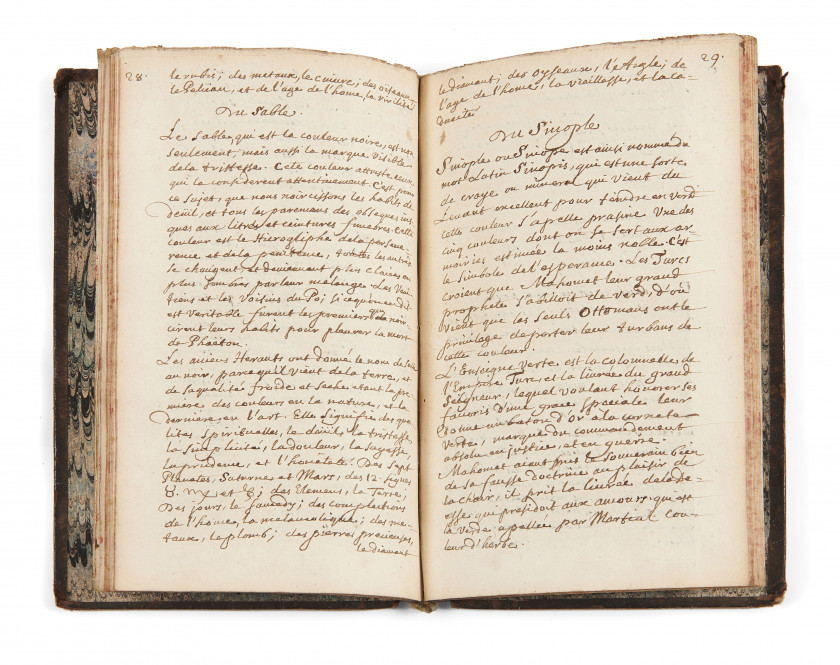 28.
le rubis; des metaux, le cuivre; des oiseaux
le Pelican, et de l'age de l'home, la virilité
Du Sable.
Le Sable, qui est la couleur noire, est non
seulement, mais aussi la marque visible
de la tristesse. Cete couleur attriste ceux
qui la considerent attentivement. C'est pour
ce sujet, que nous noircissons les habits de
deüil, et tous les paremens des obseques jus
ques aux litres et ceintures funebres. Cette
couleur est le Hieroglifhe de la perseve
rence et de la penitence, toutes les autres
se changent et devienent plus claires ou
plus sombres par leur melange. Les
et les Voisins du Po; si ce qu'on
est veritable furent les premiers qui noir-
cirent leurs habits pour pleurer la mort
de Phaëton.
Les anciens Herauts ont donné le nom de sable
au noir, parcequ'il vient de la terre, et
de sa qualité froide et seche etant la pre
miere des couleurs en la nature, et la
derniere en l'art. Elle signifie des qua
lites spirituelles, le deüil, la tristesse,
la simplicité, la douleur, la sagesse,
la prudence, et l'honéteté. Des Sept
Planetes, Saturne et Mars, des 12. signes
♉. ♍ et ; des Elemens, la Terre;
Des jours, le samedy; des complections
de l'home, la melancolique; des me-
taux, le plomb; des pierres precieuses,
le diamant
29.
le diamant; des oyseaux, l'Aigle; de
l'age de l'home, la vieillesse, et la ca-
ducité
Du Sinople
Sinople ou Sinope est ainsi nommé du
mot Latin Sinopris, qui est une sorte
de craye ou mineral qui vient du
Levant excellent pour teindre en verd
cette couleur s'apelle prasine Une des
cinq couleurs dont on se sert aux ar
moiries estimée la moins noble. C'est
le simbole de l'esperance. Les Turcs
croient que Mahomet leur grand
prophete s'abilloit de verd, d'où
vient que les seuls Ottomans ont le
privilege de porter leur turbans de
cette couleur.
L'Enseigne Verte est la colonnelle de
l'Empire Turc, et la livrée du grand
Seigneur, lequel voulant honorer ses
favoris d'une grace speciale leur
donne un baton d'or à la cornete
verte, marque du commandement
absolu en justice, et en guerre.
Mahomet aiant mis le Souverain bien
de sa fausse doctrine au plaisir de
la chair, il prit la livrée de la De-
esse que presidoit aux amours, qui est
la verde apellée par Martial cou-
leur d'herbe.